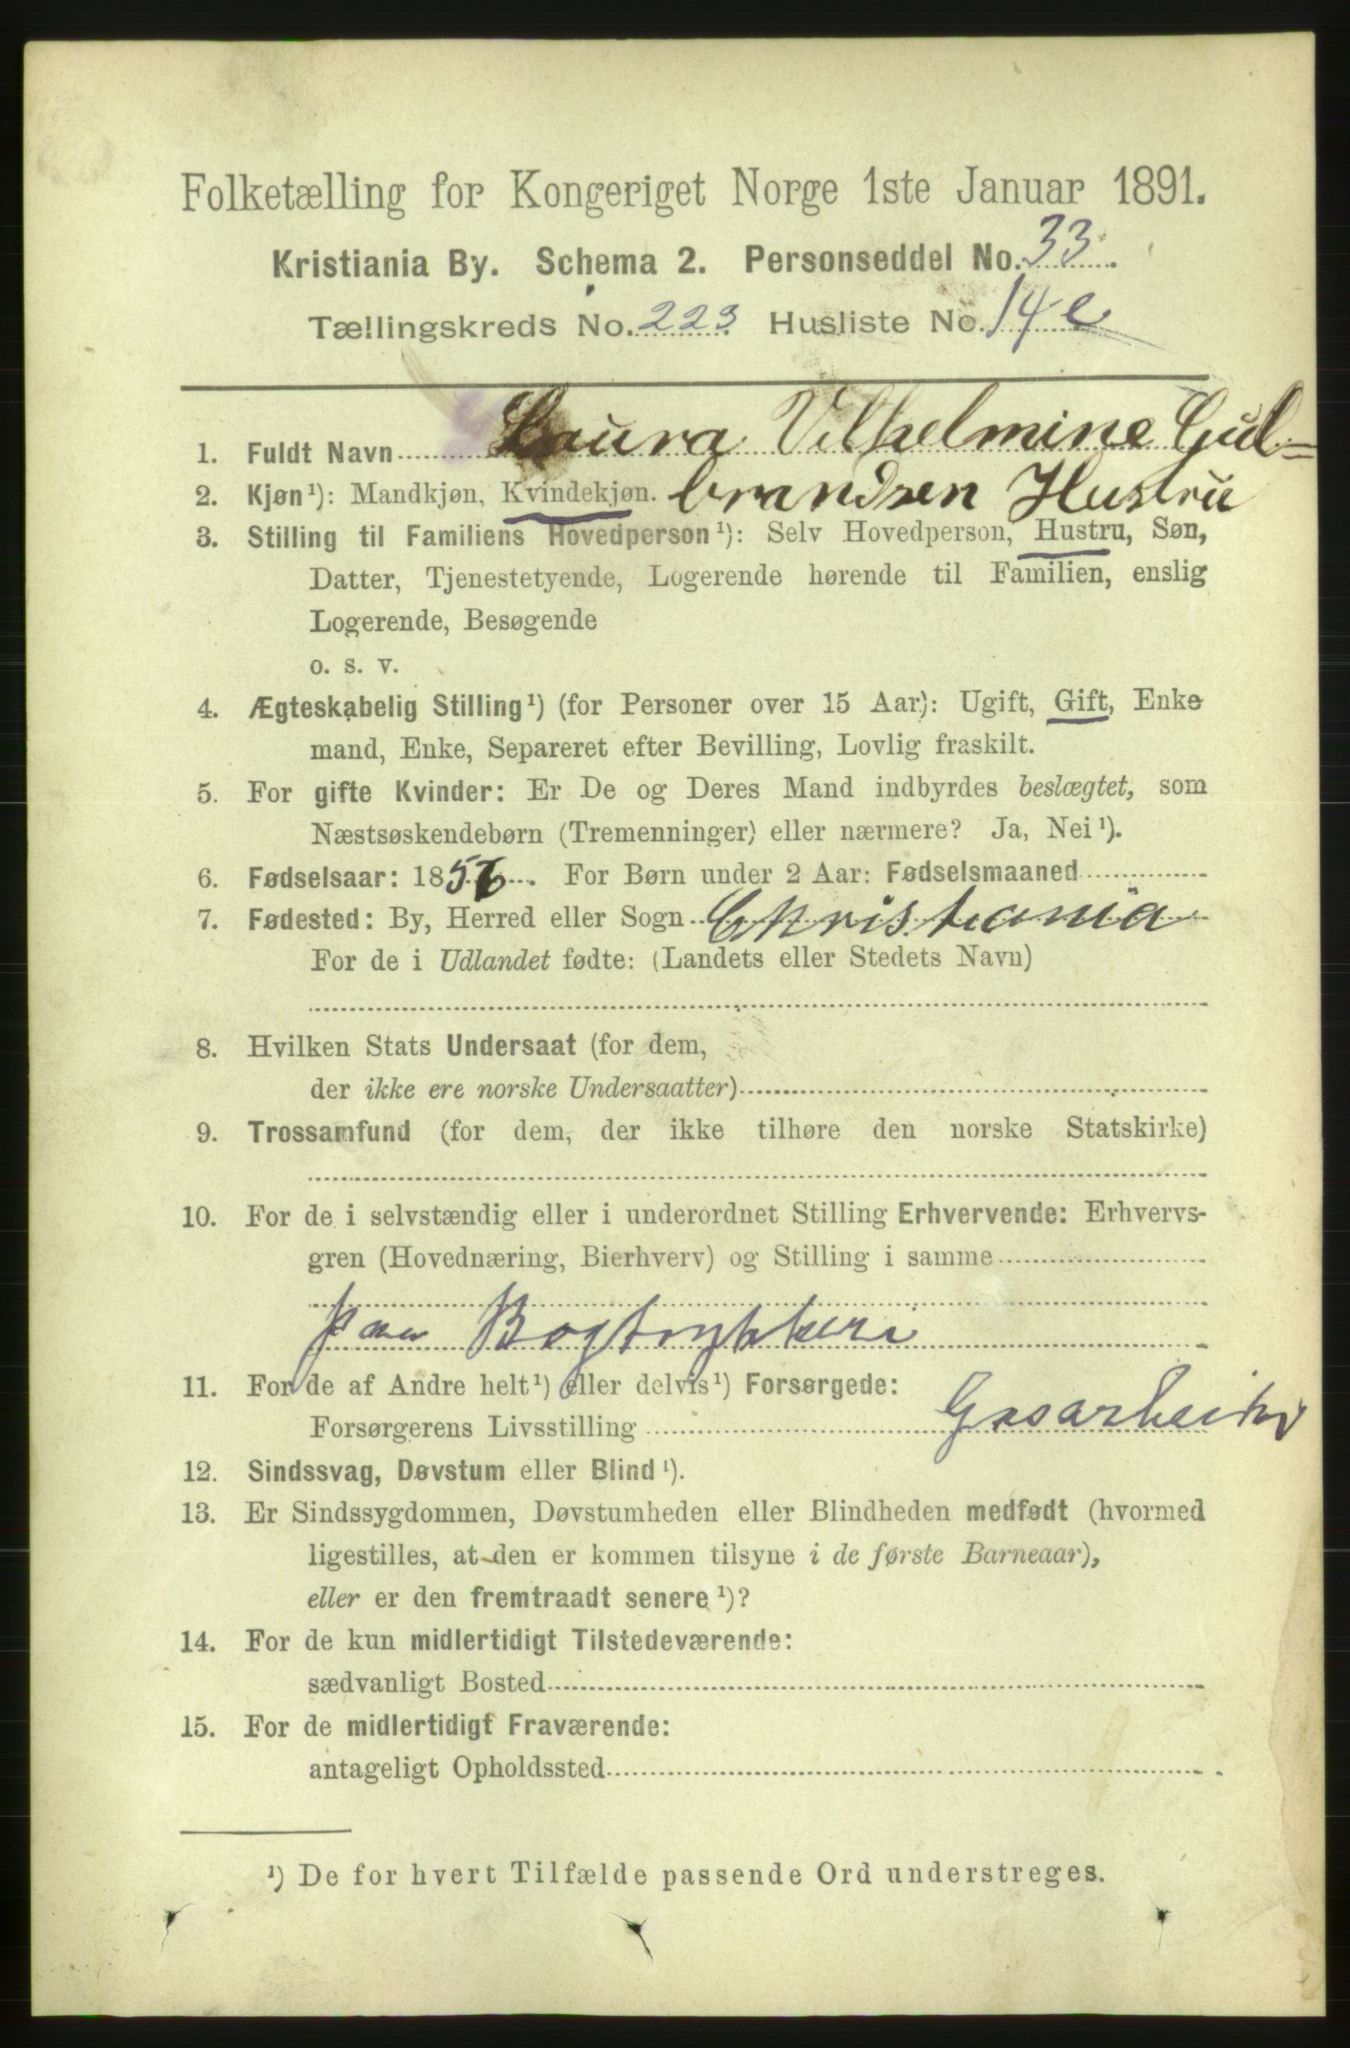 Folketælling for Kongeriget Norge 1ste Januar 1891.
Kristiania By. Schema 2. Personseddel No. 33.
Tællingskreds No. 223. Husliste No. 14 e
1. Fuldt Navn Laura Vilhelmine Gud=
2. Kjøn¹): Mandkjøn, Kvindekjøn. brandsen Hustru
3. Stilling til Familiens Hovedperson¹): Selv Hovedperson, Hustru, Søn,
Datter, Tjenestetyende, Logerende hørende til Familien, enslig
Logerende, Besøgende
o. s. v.
4. Ægteskabelig Stilling¹) (for Personer over 15 Aar): Ugift, Gift, Enke
mand, Enke, Separeret efter Bevilling, Lovlig fraskilt.
5. For gifte Kvinder: Er De og Deres Mand indbyrdes beslægtet, som
Næstsøskendebørn (Tremenninger) eller nærmere? Ja, Nei¹).
6. Fødselsaar: 1856. For Børn under 2 Aar: Fødselsmaaned
7. Fødested: By, Herred eller Sogn Christiania
For de i Udlandet fødte: (Landets eller Stedets Navn)
8. Hvilken Stats Undersaat (for dem,
der ikke ere norske Undersaatter)
9. Trossamfund (for dem, der ikke tilhøre den norske Statskirke)
10. For de i selvstændig eller i underordnet Stilling Erhvervende: Erhvervs-
gren (Hovednæring, Bierhverv) og Stilling i samme
paa Bogtrykkeri
11. For de af Andre helt¹) eller delvis¹) Forsørgede:
Forsørgerens Livsstilling Gasarbeider
12. Sindssvag, Døvstum eller Blind¹).
13. Er Sindssygdommen, Døvstumheden eller Blindheden medfødt (hvormed
ligestilles, at den er kommen tilsyne i de første Barneaar),
eller er den fremtraadt senere¹)?
14. For de kun midlertidigt Tilstedeværende:
sædvanligt Bosted
15. For de midlertidigt Fraværende:
antageligt Opholdssted
¹) De for hvert Tilfælde passende Ord understreges.